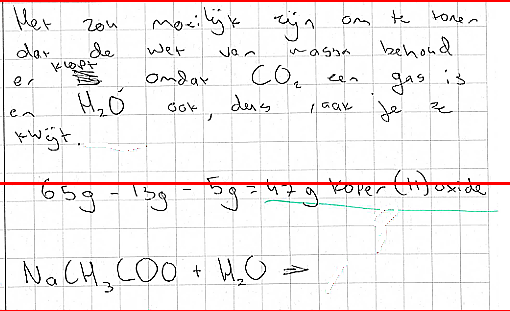 Het zou moeilijk zijn om te tonen
dat de wet van massa behoud
er klopt omdat CO₂ een gas is
en H₂O ook, dus raak je ze
kwijt.
65g - 13g - 5g = 47g koper(II)oxide
NaCH₃COO + H₂O ⇒